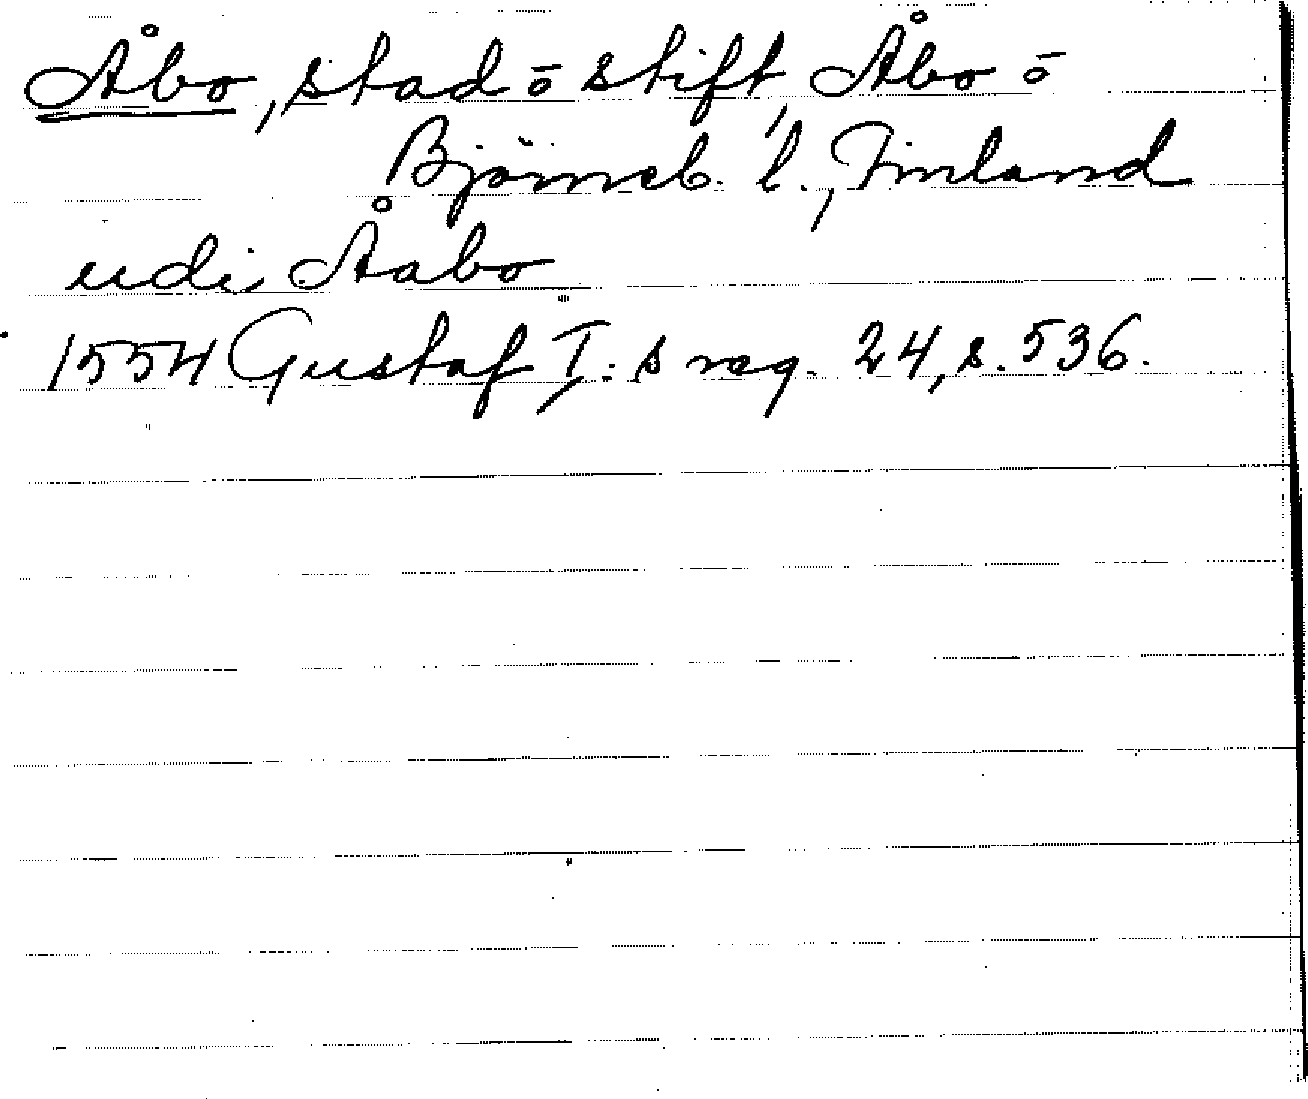 Åbo, stad ō stift, Åbo ō
Björneb. l., Finland
udi Åabo
1554 Gustaf I:s reg. 24, s. 536.